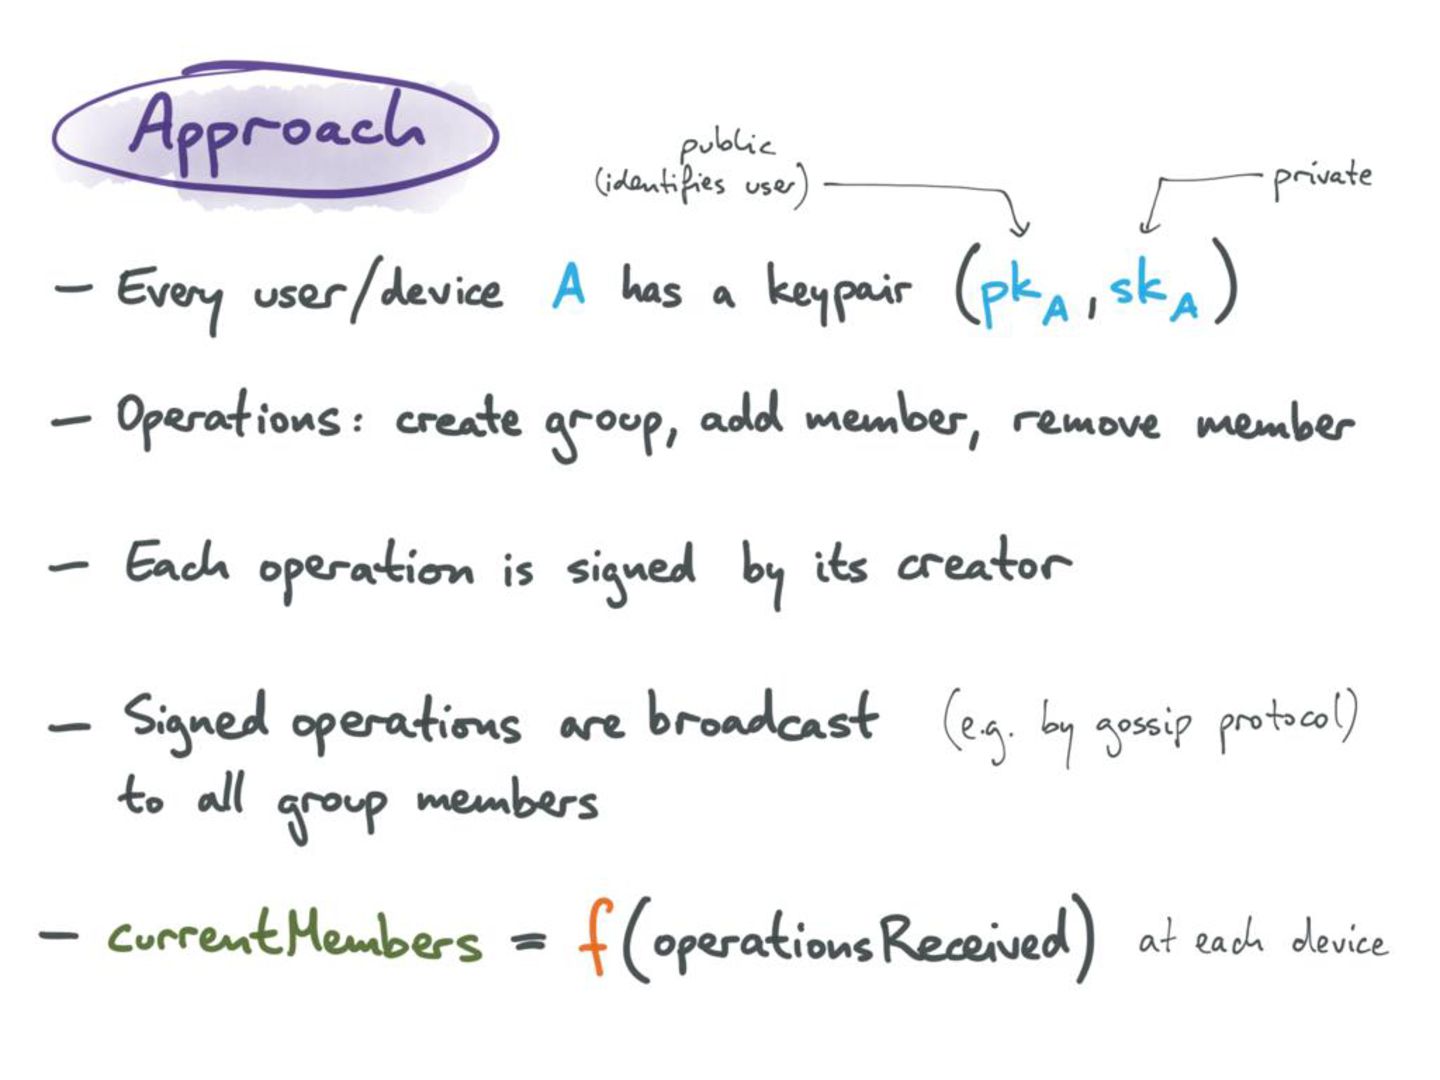 Approach
public
(identifies user)
private
- Every user/device A has a keypair (pk_A, sk_A)
- Operations: create group, add member, remove member
- Each operation is signed by its creator
- Signed operations are broadcast (e.g. by gossip protocol)
to all group members
- currentMembers = f(operationsReceived) at each device